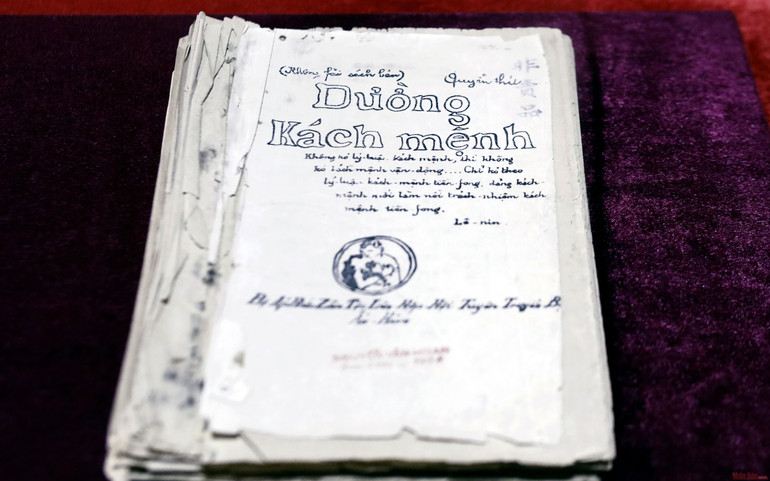 (Không fải sách bán) Quyển thứ
Đường
Kách mệnh
Không có lý luận kách mệnh, thì không
có kách mệnh vận động.... Chỉ có theo
lý luận kách mệnh tiền fong, đảng kách
mệnh mới làm nổi trách nhiệm kách
mệnh tiền fong.
Lê-nin.
Bị Áp Bức Dân Tộc Liên Hiệp Hội Tuyên Truyền Bộ